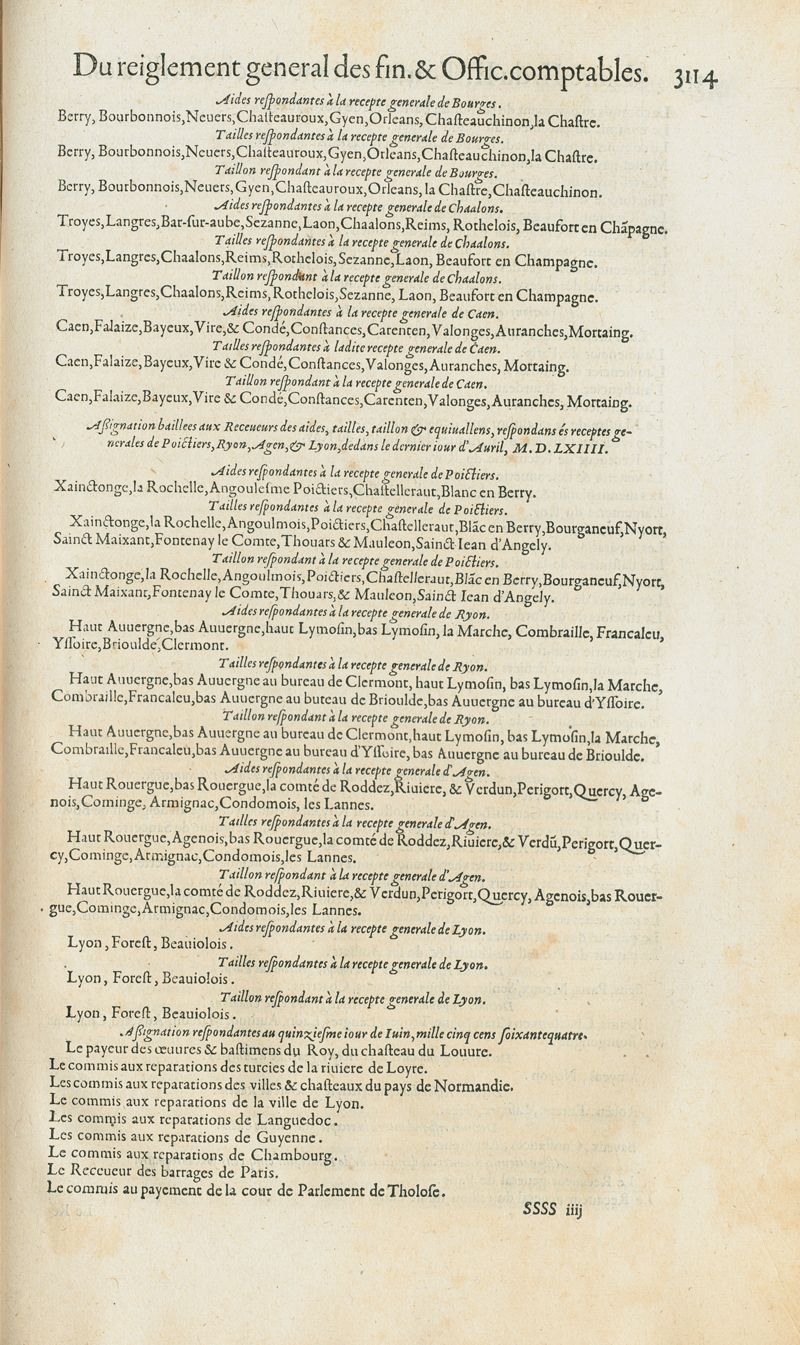 Du reiglement general des fin. & Offic. comptables. 3114
Aides reſpondantes à la recepte generale de Bourges.
Berry, Bourbonnois, Neuers, Chaſteauroux, Gyen, Orleans, Chaſteauchinon, la Chaſtre.
Tailles reſpondantes à la recepte generale de Bourges.
Berry, Bourbonnois, Neuers, Chaſteauroux, Gyen, Orleans, Chaſteauchinon, la Chaſtre.
Taillon reſpondant à la recepte generale de Bourges.
Berry, Bourbonnois, Neuers, Gyen, Chaſteauroux, Orleans, la Chaſtre, Chaſteauchinon.
Aides reſpondantes à la recepte generale de Chaalons.
Troyes, Langres, Bar-ſur-aube, Sezanne, Laon, Chaalons, Reims, Rothelois, Beaufort en Chãpagne.
Tailles reſpondantes à la recepte generale de Chaalons.
Troyes, Langres, Chaalons, Reims, Rothelois, Sezanne, Laon, Beaufort en Champagne.
Taillon reſpondant à la recepte generale de Chaalons.
Troyes, Langres, Chaalons, Reims, Rothelois, Sezanne, Laon, Beaufort en Champagne.
Aides reſpondantes à la recepte generale de Caen.
Caen, Falaize, Bayeux, Vire, & Condé, Conſtances, Carenten, Valonges, Auranches, Mortaing.
Tailles reſpondantes à ladite recepte generale de Caen.
Caen, Falaize, Bayeux, Vire & Condé, Conſtances, Valonges, Auranches, Mortaing.
Taillon reſpondant à la recepte generale de Caen.
Caen, Falaize, Bayeux, Vire & Condé, Conſtances, Carenten, Valonges, Auranches, Mortaing.
Aſsignation baillees aux Receueurs des aides, tailles, taillon & equiuallens, reſpondans és receptes ge-
nerales de Poictiers, Ryon, Agen, & Lyon, dedans le dernier iour d'Auril, M. D. LXIIII.
Aides reſpondantes à la recepte generale de Poictiers.
Xainctonge, la Rochelle, Angouleſme Poictiers, Chaſtelleraut, Blanc en Berry.
Tailles reſpondantes à la recepte generale de Poictiers.
Xainctonge, la Rochelle, Angoulmois, Poictiers, Chaſtelleraut, Blãc en Berry, Bourganeuf, Nyort,
Sainct Maixant, Fontenay le Comte, Thouars & Mauleon, Sainct Iean d'Angely.
Taillon reſpondant à la recepte generale de Poictiers.
Xainctonge, la Rochelle, Angoulmois, Poictiers, Chaſtelleraut, Blãc en Berry, Bourganeuf, Nyort,
Sainct Maixant, Fontenay le Comte, Thouars, & Mauleon, Sainct Iean d'Angely.
Aides reſpondantes à la recepte generale de Ryon.
Haut Auuergne, bas Auuergne, haut Lymoſin, bas Lymoſin, la Marche, Combraille, Francaleu,
Yſſoire, Brioulde, Clermont.
Tailles reſpondantes à la recepte generale de Ryon.
Haut Auuergne, bas Auuergne au bureau de Clermont, haut Lymoſin, bas Lymoſin, la Marche,
Combraille, Francaleu, bas Auuergne au bureau de Brioulde, bas Auuergne au bureau d'Yſſoire.
Taillon reſpondant à la recepte generale de Ryon.
Haut Auuergne, bas Auuergne au bureau de Clermont, haut Lymoſin, bas Lymoſin, la Marche,
Combraille, Francaleu, bas Auuergne au bureau d'Yſſoire, bas Auuergne au bureau de Brioulde.
Aides reſpondantes à la recepte generale d'Agen.
Haut Rouergue, bas Rouergue, la comté de Roddez, Riuiere, & Verdun, Perigort, Quercy, Age-
nois, Cominge, Armignac, Condomois, les Lannes.
Tailles reſpondantes à la recepte generale d'Agen.
Haut Rouergue, Agenois, bas Rouergue, la comté de Roddez, Riuiere, & Verdũ, Perigort, Quer-
cy, Cominge, Armignac, Condomois, les Lannes.
Taillon reſpondant à la recepte generale d'Agen.
Haut Rouergue, la comté de Roddez, Riuiere, & Verdun, Perigort, Quercy, Agenois, bas Rouer-
gue, Cominge, Armignac, Condomois, les Lannes.
Aides reſpondantes à la recepte generale de Lyon.
Lyon, Foreſt, Beauiolois.
Tailles reſpondantes à la recepte generale de Lyon.
Lyon, Foreſt, Beauiolois.
Taillon reſpondant à la recepte generale de Lyon.
Lyon, Foreſt, Beauiolois.
Aſsignation reſpondantes au quinzieſme iour de Iuin, mille cinq cens ſoixantequatre.
Le payeur des œuures & baſtimens du Roy, du chaſteau du Louure.
Le commis aux reparations des turcies de la riuiere de Loyre.
Les commis aux reparations des villes & chaſteaux du pays de Normandie.
Le commis aux reparations de la ville de Lyon.
Les commis aux reparations de Languedoc.
Les commis aux reparations de Guyenne.
Le commis aux reparations de Chambourg.
Le Receueur des barrages de Paris.
Le commis au payement de la cour de Parlement de Tholoſe.
SSSS iiij